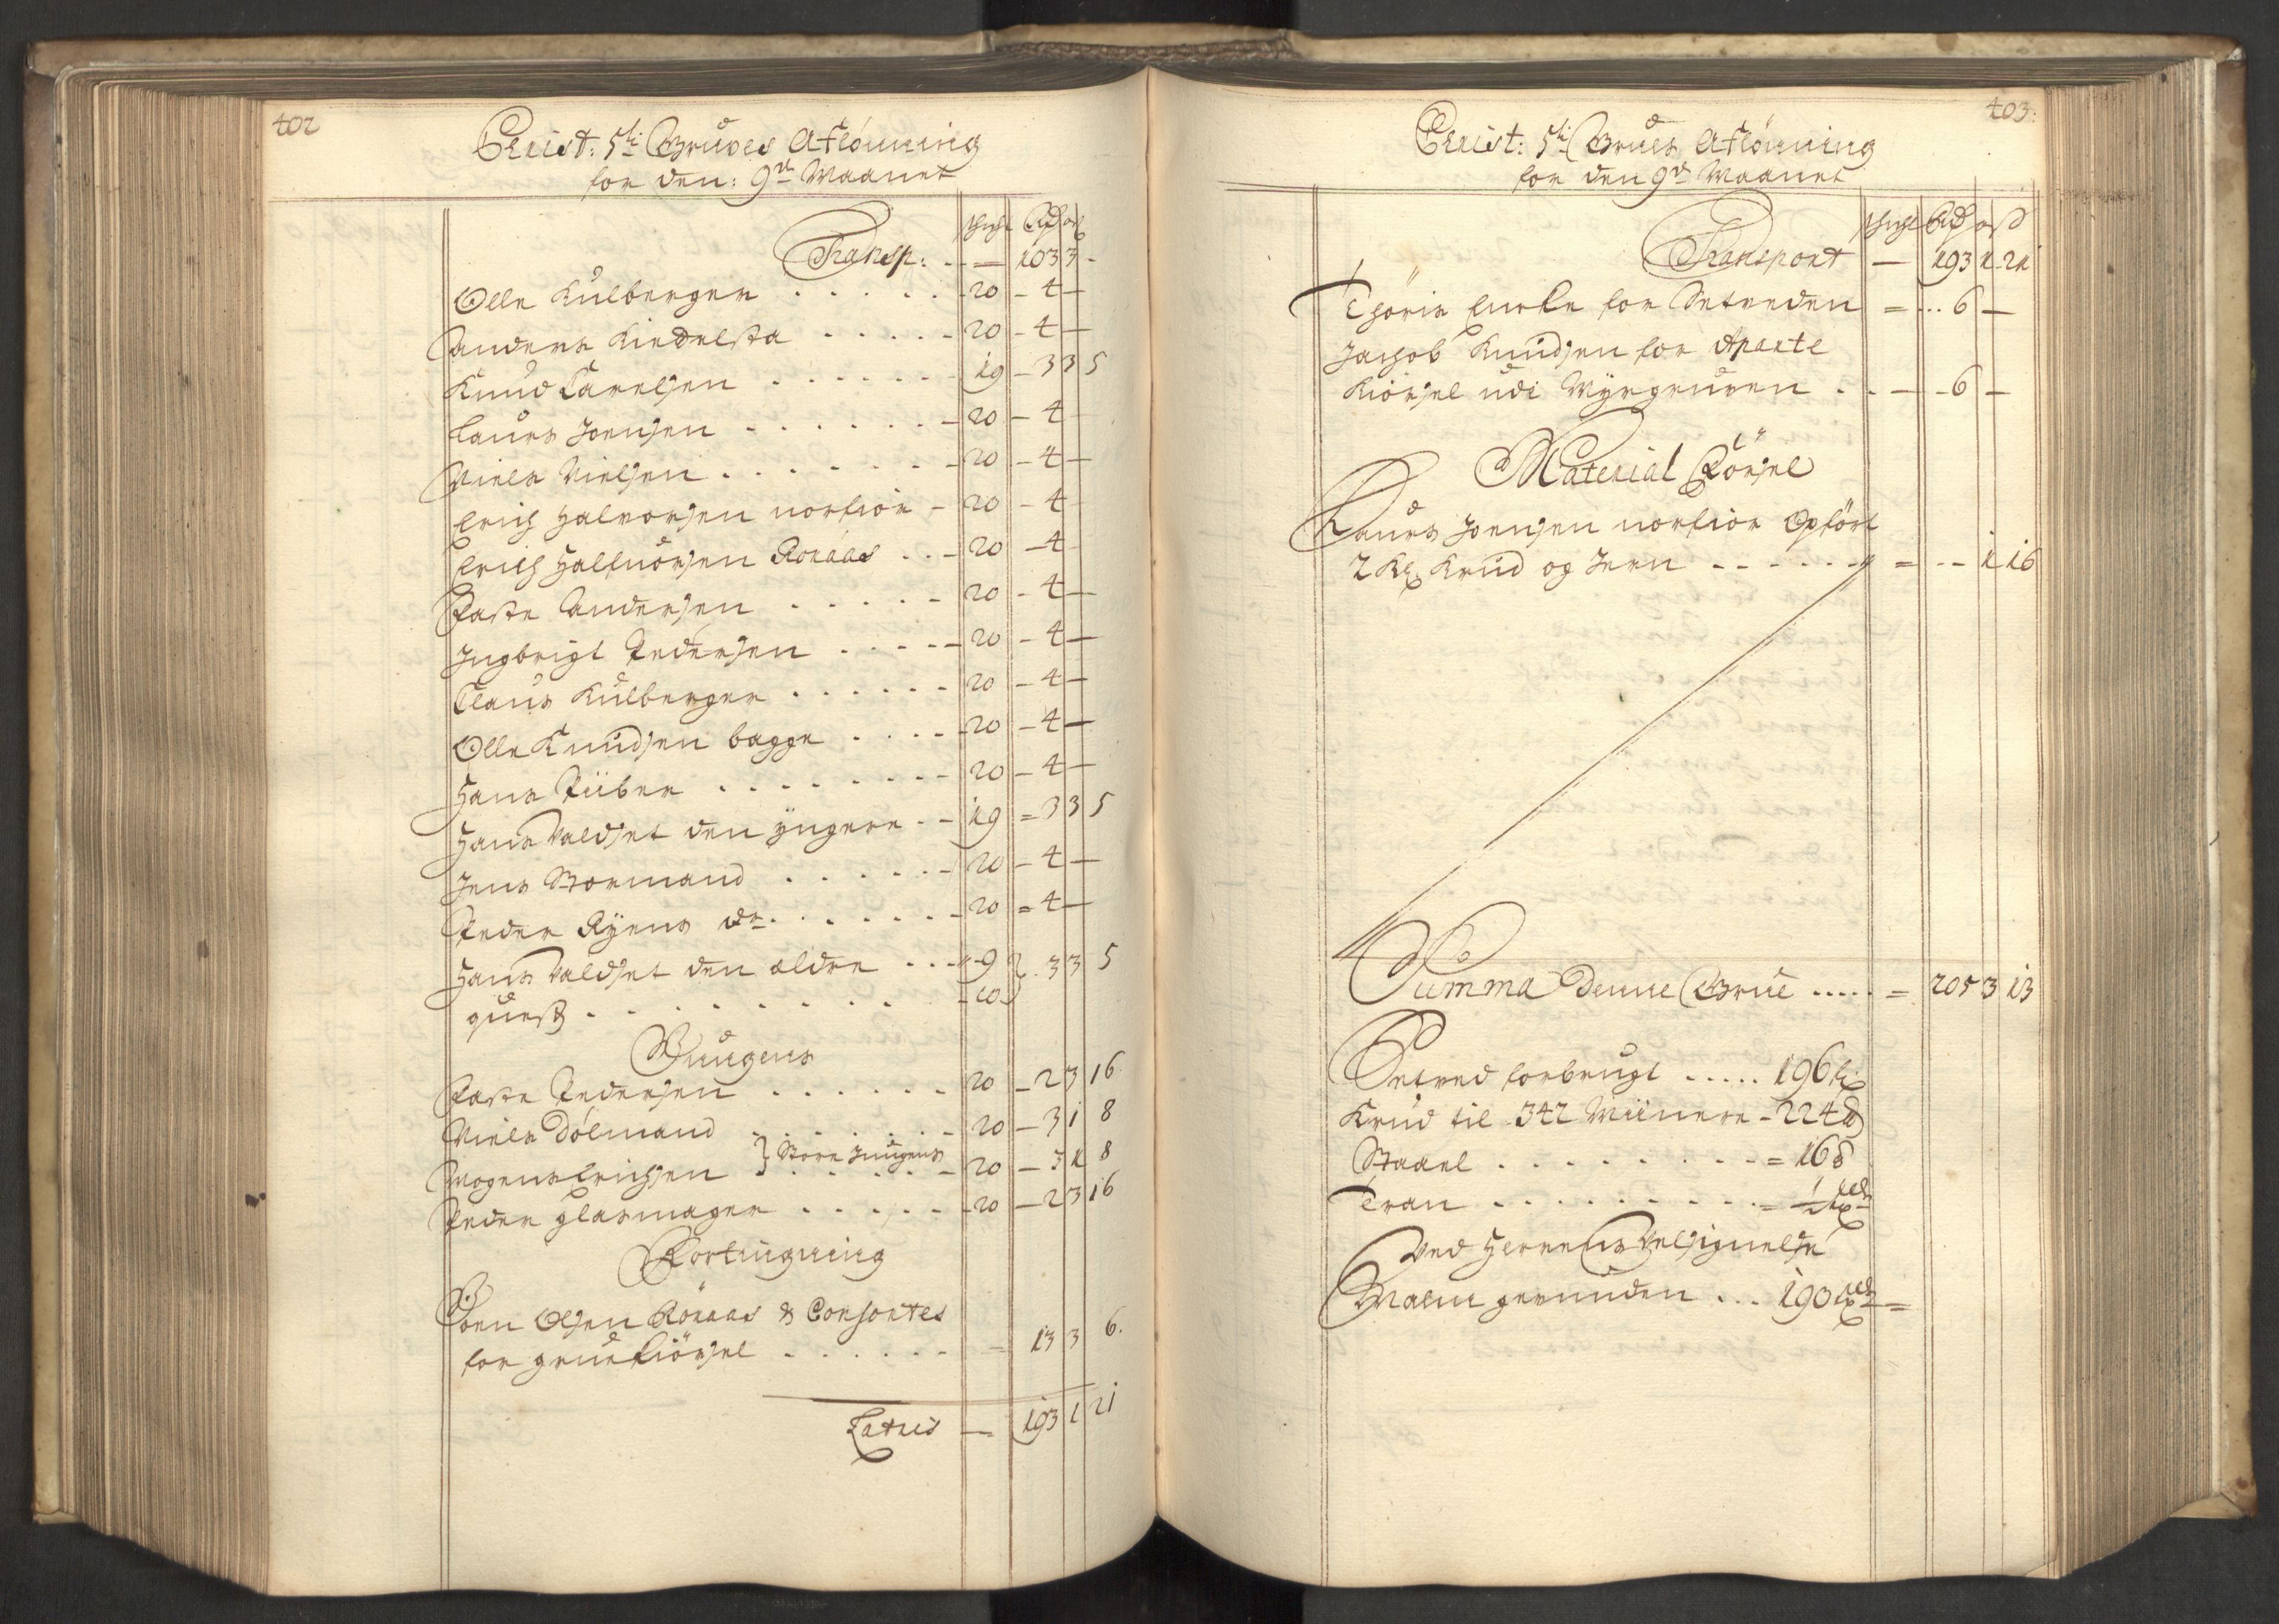 402
Christ: 5ti Gruves Aflønning
for den: 9de Maanet
Schicht Rd ort ß
Transp: - - 103 3 -
Olle Kulberger . . . . . - 20 - 4 -
Anders Kindelsta . . . . - 20 - 4 -
Knud Carelsen . . . . . . - 19 - 3 3 5
Laurs Joensen . . . . . . - 20 - 4
Niels Nielsen . . . . . . - 20 - 4 -
Erich Halvorsen norfiør - 20 - 4
Erich Halfuorsen Røraas . . - 20 - 4
Paste Andersen . . . . . - 20 - 4 -
Ingbrigt Pedersen . . . . - 20 - 4 -
Claus Kulberger . . . . . . - 20 - 4 -
Olle Knudsen bagge . . . . - 20 - 4 -
Hans Tüber . . . . . . . . - 20 - 4 -
Hans Valdset den yngere . - 19 = 3 3 5
Jens Stormand . . . . . . - 20 - 4 -
Peder Ryens dr . . . . . . . - 20 = 4 -
Hans Valdset den eldre . . . - 9 } . 3 3 5
. . . . . . . . - 10
Jungens
Paste Pedersen . . . . . . 20 - 2 3 16
Niels Dølmand . . . . . . - 20 - 3 1 8
Mogens Erichsen } Store Jungens - 20 - 3 1 8
Peder glasmager . . . . . - 20 - 2 3 16
Fortingning
Joen Olsen Røraas & Consortes
for gruekiørsel . . . . . . - = 13 3 6.
Latus - 193 1 21
403:
Christ: 5ti Grues Afløning
for den 9de Maanet
Schicht Rd ort ß
Transport - 193 1 21
Thøris Encke for Setveden = . . . 6 -
Jachob Knudsen for Aparte
Kiørsel udi Myrgruven . . - - 6 -
Material Førsel
Laurs Joensen norfiør Opført
2 Kl Krud og Jern - - - - - - = - - 1 16
Summa Denne Grue . . . . . = 205 3 13
Setved forbrugt . . . . . 196 fv
Krud til 342 Miinere - 224 ℔
Staael . . . . . . . . . = 16 ℔
Tran . . . . . . . . . = ½ td
Ved Herrens Velsignelse
Malm gevunden . . . 190 tdr =